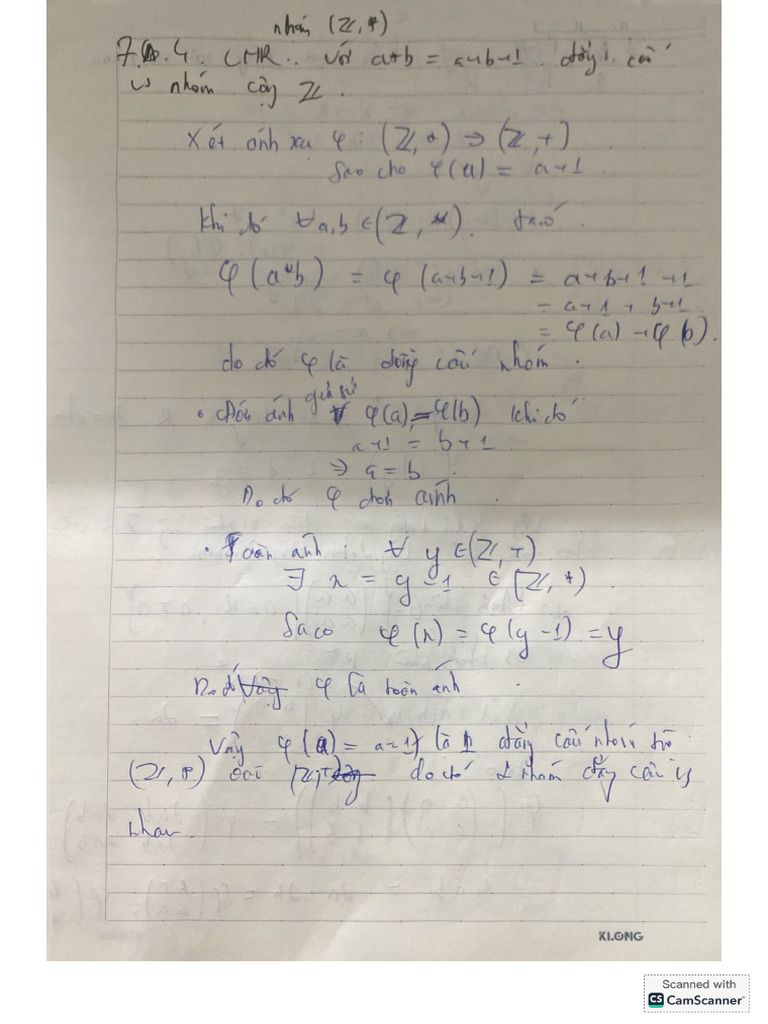 nhóm (ℤ, *)
7.4. CMR.. với a*b = a+b+1. đẳng cấu
vs nhóm cộng ℤ.
Xét ánh xạ φ : (ℤ, *) → (ℤ, +)
Sao cho φ(a) = a+1
Khi đó ∀a,b ∈ (ℤ, *). ta có
φ(a*b) = φ(a+b+1) = a+b+1+1
= a+1 + b+1
= φ(a) + φ(b).
do đó φ là đồng cấu nhóm.
• Đơn ánh giả sử φ(a) = φ(b) khi đó
a+1 = b+1
⇒ a = b.
Do đó φ đơn ánh.
• Toàn ánh : ∀ y ∈ (ℤ, +)
∃ x = y-1 ∈ (ℤ, *)
Sao φ(x) = φ(y-1) = y
Do đó φ là toàn ánh.
Vậy φ(a) = a+1 là 1 đẳng cấu nhóm từ
(ℤ, *) (ℤ, +) do đó 2 nhóm đẳng cấu vs
nhau.
KLONG
Scanned with
CS CamScanner